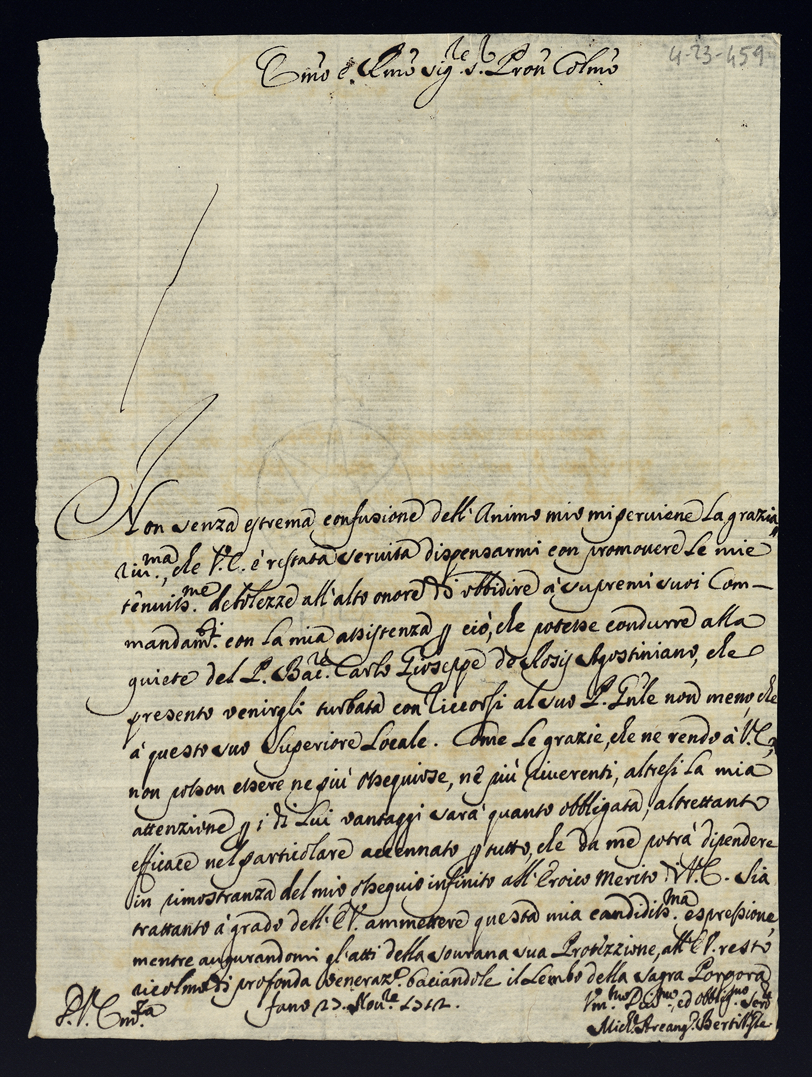 4-23-459
Emo e Rmo Sigre Pron Colmo
Non senza estrema confusione dell'Animo mio mi perviene la grazia
che V.E. è restata servita dispensarmi con promovere le mie
tenuissme debolezze all'alto onore di obbidire a' supremi suoi Com-
mandamti con la mia assistenza p ciò, che potesse condurre alla
quiete del P. Bacre Carlo Gioseppe de Rosij Agostiniano, che
presento venirgli turbata con riccorsi al suo P. Gnle non meno, che
a questo suo Superiore Locale. Come le grazie, che ne rendo à V.E.,
non posson essere ne più ossequiose, nè più riverenti, altresi la mia
attenzione p i di Lui vantaggi sarà quanto obbligata, altrettanto
efficace nel particolare accennato p tutto, che da me potrà dipendere
in rimostranza del mio ossequio infinito all'Eroico Merito di V.E. Sia
trattanto à grado dell'E.V. ammettere questa mia candidissma espressione
mentre augurandomi gl'atti della sourana sua Protezzione, all'E.V. restò
ricolmo di profonda veneraze. baciandole il Lembo della Sagra Porpora
D.V. Emza Fano 23 Noure 1712.
Vmo Dmo, ed Obbligmo Serv
Michle Arcango